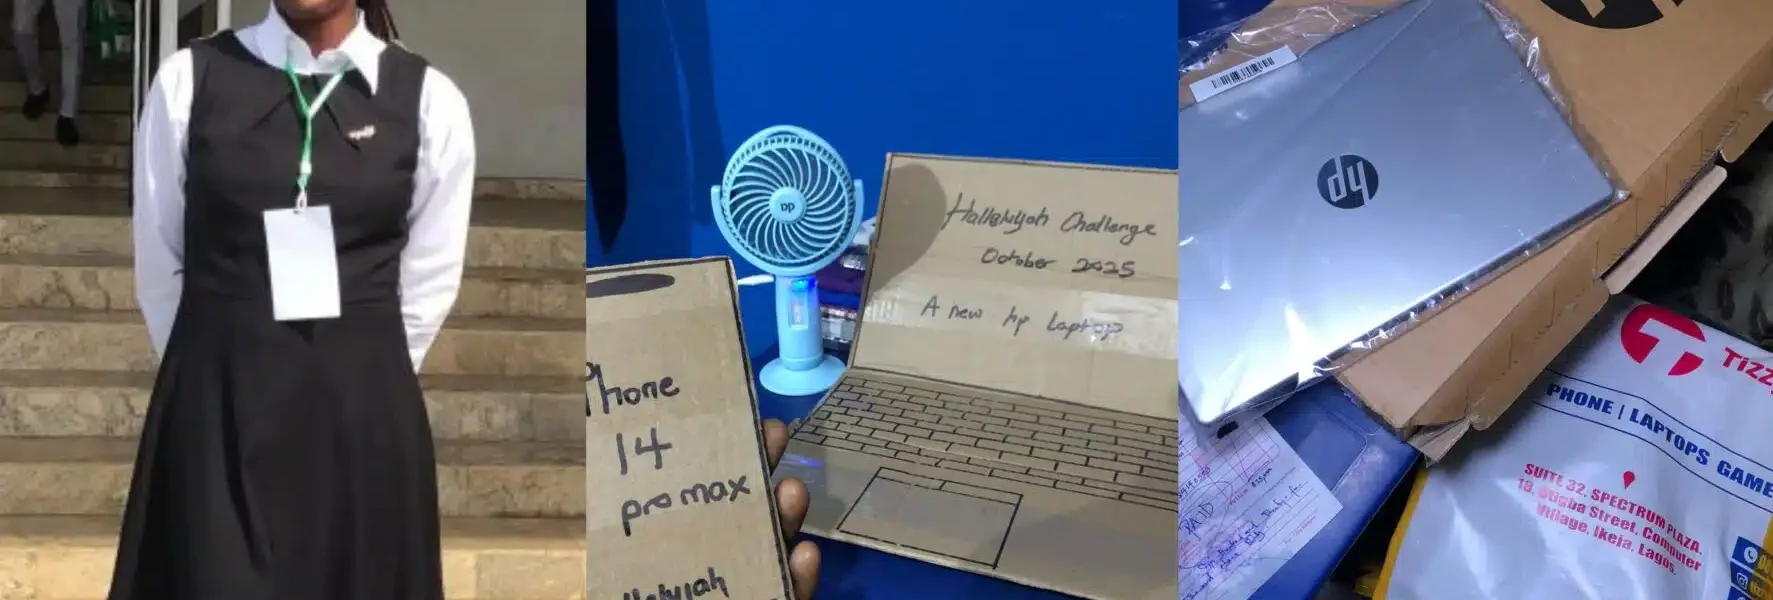 Phone
14
promax
llelujah
DP
Hallelujah Challenge
October 2025
A new hp laptop
hp
PAID
Tizz
PHONE | LAPTOPS GAME
SUITE 32, SPECTRUM PLAZA.
Otigba Street, Computer
Village, Ikeja, Lagos.